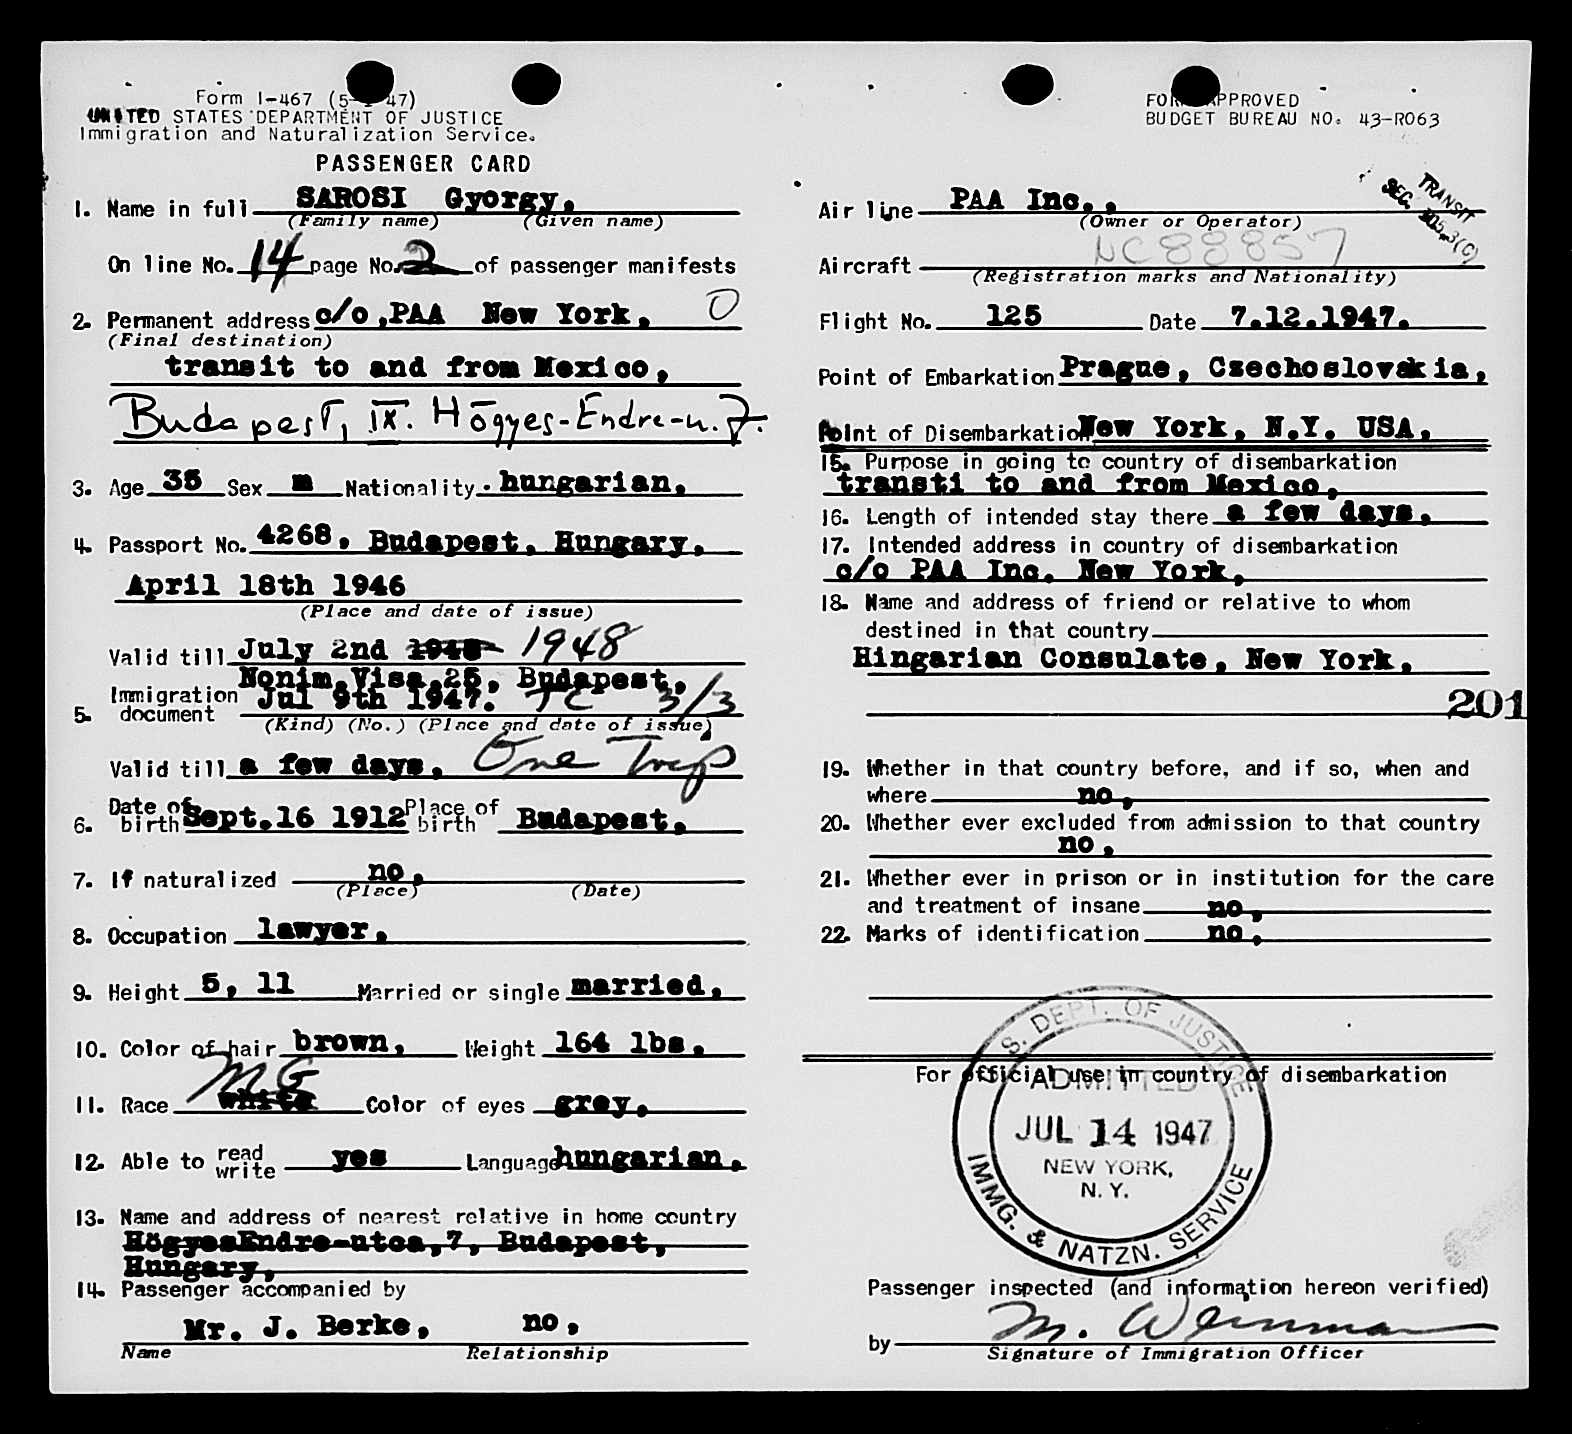 Form I-467 (5-1-47)
UNITED STATES DEPARTMENT OF JUSTICE
Immigration and Naturalization Service.
PASSENGER CARD
1. Name in full SAROSI Gyorgy,
(Family name) (Given name)
On line No. 14 page No. 2 of passenger manifests
2. Permanent address c/o,PAA New York, O
(Final destination)
transit to and from Mexico,
Budapest, IX. Hőgyes-Endre-u. 7.
3. Age 35 Sex m Nationality. hungarian,
4. Passport No. 4268, Budapest, Hungary,
April 18th 1946
(Place and date of issue)
Valid till July 2nd 1948
Nonim.Visa,25, Budapest,
5. Immigration document Jul 9th 1947. TC 3/3
(Kind) (No.) (Place and date of issue)
Valid till a few days, One Trip
6. Date of birth Sept.16 1912 Place of birth Budapest,
7. If naturalized no,
(Place) (Date)
8. Occupation lawyer,
9. Height 5, 11 Married or single married,
10. Color of hair brown, Weight 164 lbs,
11. Race white M.G Color of eyes grey,
12. Able to read write yes Language hungarian,
13. Name and address of nearest relative in home country
HögyesEndre-utca,7, Budapest,
Hungary,
14. Passenger accompanied by
Mr. J. Berke, no,
Name Relationship
FORM APPROVED
BUDGET BUREAU NO. 43-R063
TRANSIT
SEC. 105.3(C)
Air line PAA Inc.,
(Owner or Operator)
Aircraft NC88857
(Registration marks and Nationality)
Flight No. 125 Date 7.12.1947.
Point of Embarkation Prague, Czechoslovakia,
Point of Disembarkation New York, N.Y. USA,
15. Purpose in going to country of disembarkation
transti to and from Mexico,
16. Length of intended stay there a few days,
17. Intended address in country of disembarkation
c/o PAA Inc. New York,
18. Name and address of friend or relative to whom
destined in that country
Hingarian Consulate, New York,
201
19. Whether in that country before, and if so, when and
where no,
20. Whether ever excluded from admission to that country
no,
21. Whether ever in prison or in institution for the care
and treatment of insane no,
22. Marks of identification no,
For official use in country of disembarkation
S. DEPT. OF JUSTICE
ADMITTED
JUL 14 1947
NEW YORK,
N. Y.
IMMG. & NATZN. SERVICE
Passenger inspected (and information hereon verified)
by M. Weinman
Signature of Immigration Officer